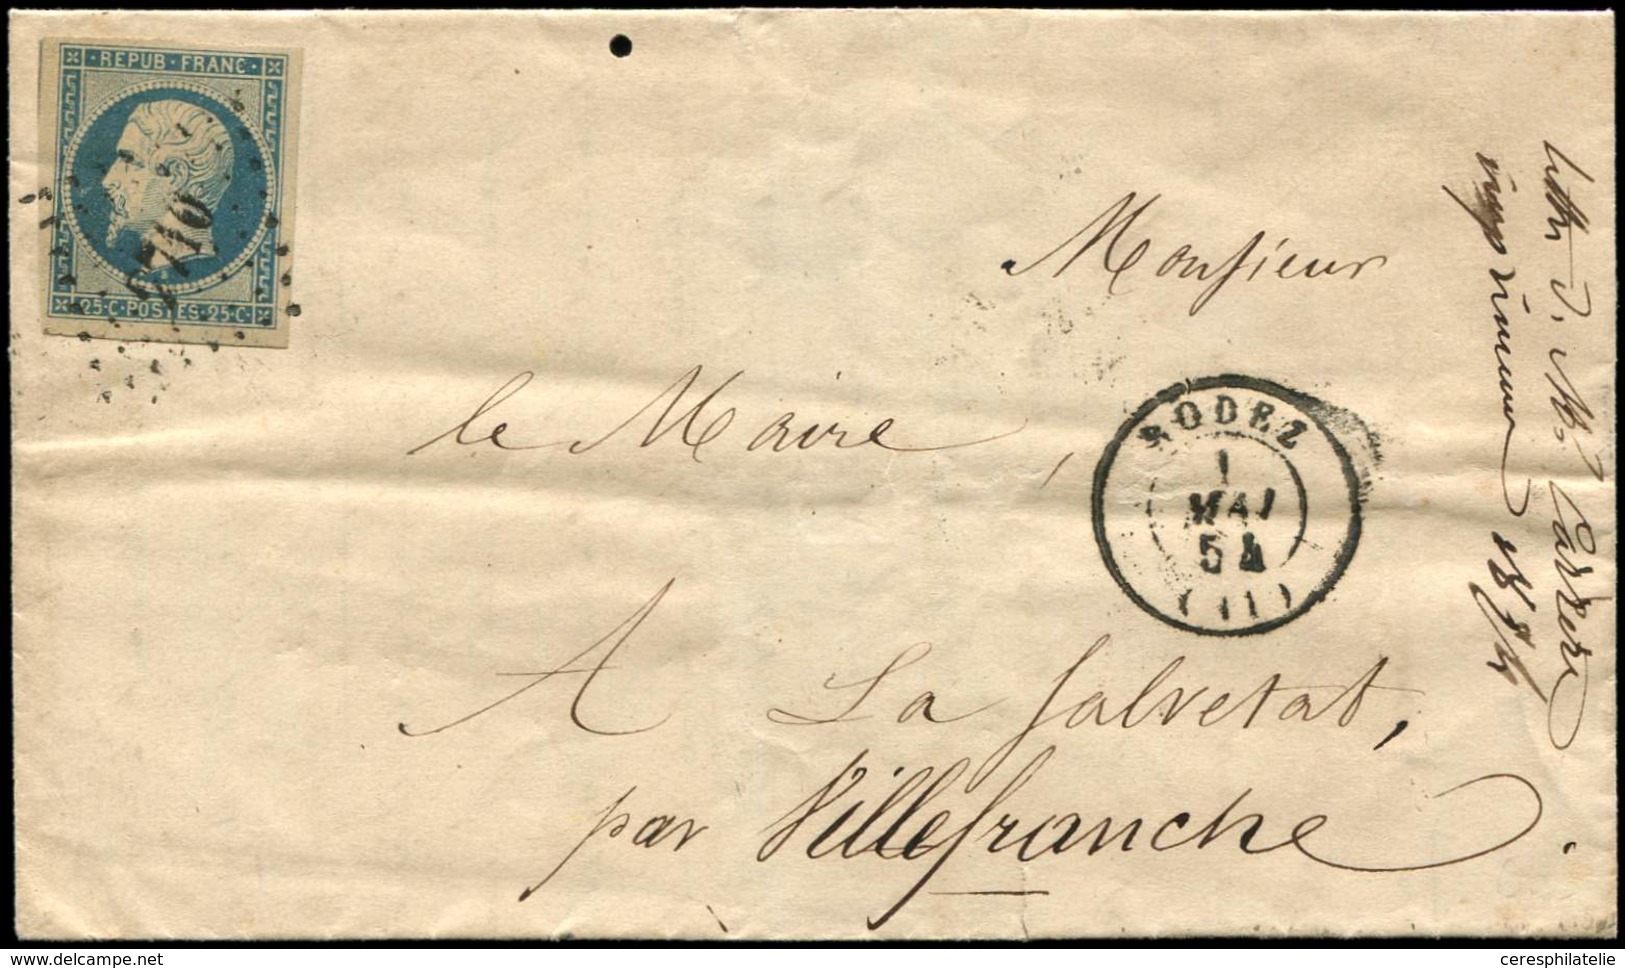 · REPUB · FRANC ·
2710
25 · C · POSTES · 25 · C ·
Monsieur
le Maire,
RODEZ
1
MAI
54
(11)
A La Salvetat,
par Villefranche.
lettre d. M. Carrere
imprimeur 1854
delcampe.net
ceresphilatelie